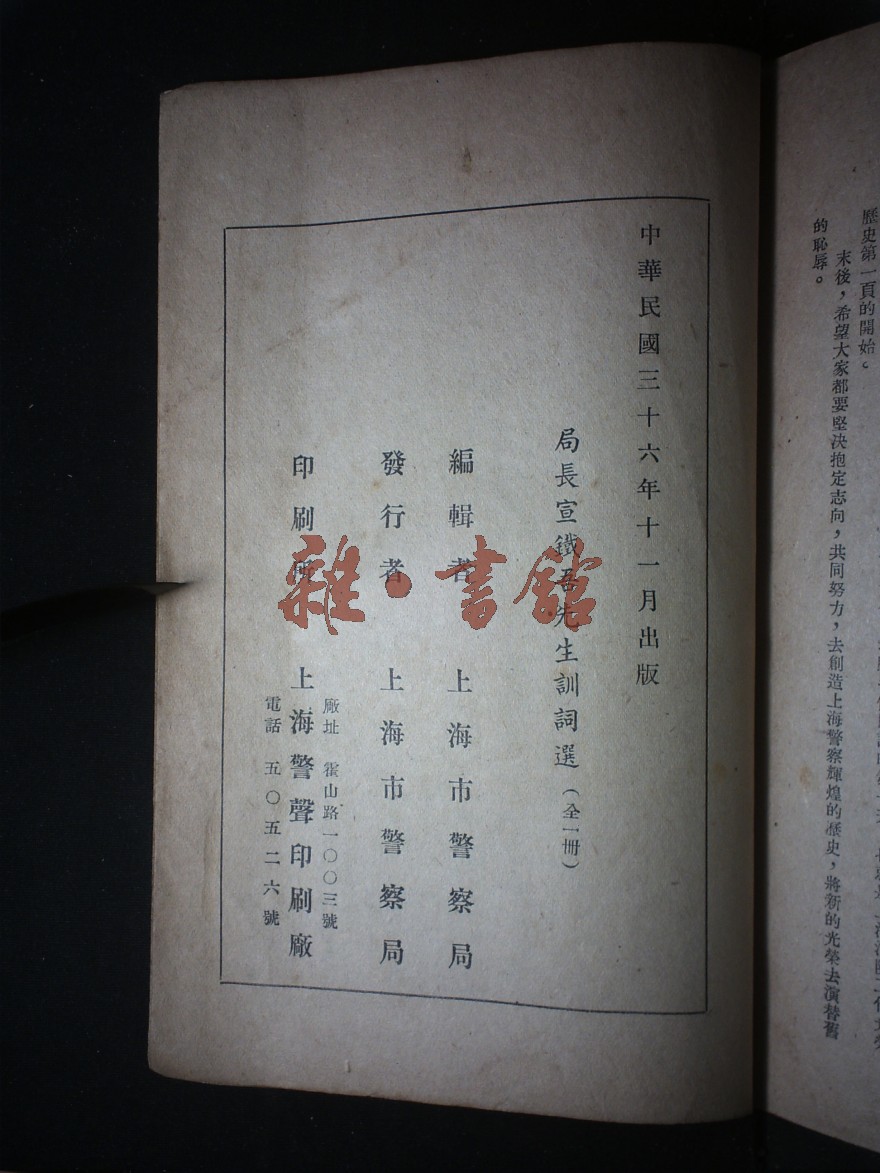 歷史第一頁的開始。
末後，希望大家都要堅決抱定志向，共同努力，去創造上海警察輝煌的歷史，將新的光榮去演替舊
的恥辱。
中華民國三十六年十一月出版
局長宣鐵吾先生訓詞選（全一冊）
編輯者 上海市警察局
發行者 上海市警察局
印刷所 上海警聲印刷廠
廠址 霍山路一〇〇三號
電話 五〇五二六號
雜·書館